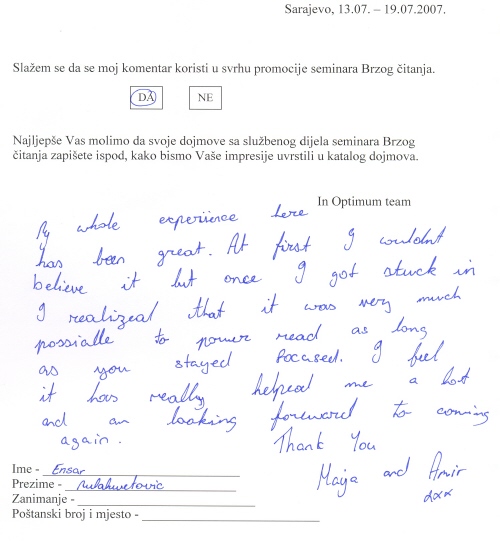 Sarajevo, 13.07. – 19.07.2007.
Slažem se da se moj komentar koristi u svrhu promocije seminara Brzog čitanja.
DA NE
Najljepše Vas molimo da svoje dojmove sa službenog dijela seminara Brzog
čitanja zapišete ispod, kako bismo Vaše impresije uvrstili u katalog dojmova.
In Optimum team
My whole experiience here
has been great. At first I wouldnt
believe it but once I got stuck in
I realizeal that it was very much
possialle to power read as long
as you stayed focased. I feel
it has really helpeal me a lot
and am looking forward to coming
again. Thank You
Maja and Amir
xxx
Ime - Ensar
Prezime -
Zanimanje -
Poštanski broj i mjesto -